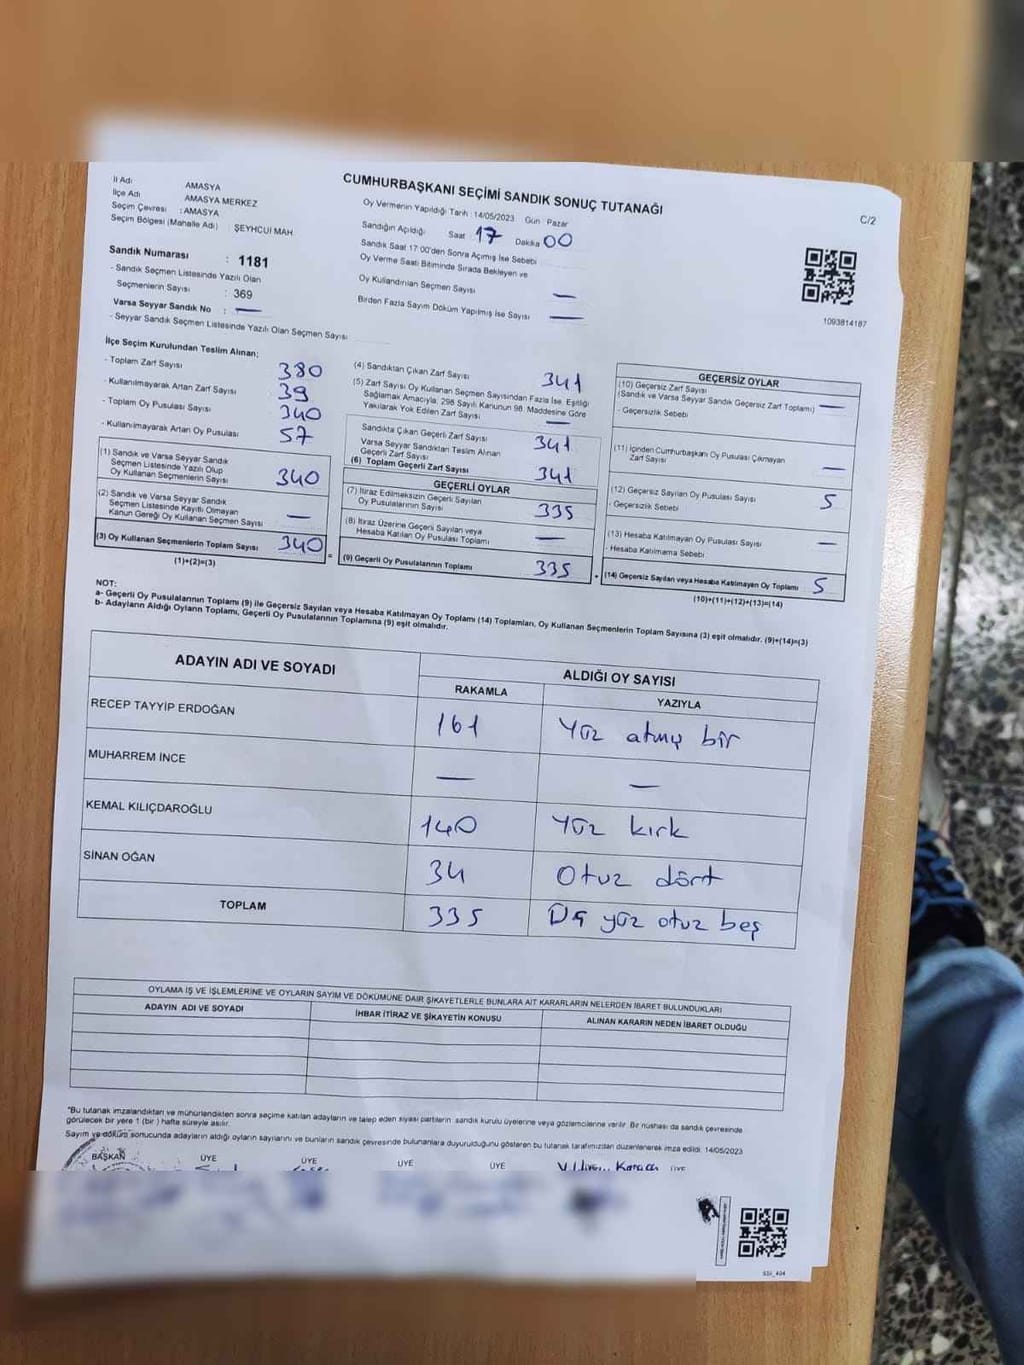 CUMHURBAŞKANI SEÇİMİ SANDIK SONUÇ TUTANAĞI
C/2
İl Adı AMASYA
İlçe Adı AMASYA MERKEZ
Seçim Çevresi : AMASYA
Seçim Bölgesi (Mahalle Adı) : ŞEYHCUİ MAH
Oy Vermenin Yapıldığı Tarih : 14/05/2023 Gün : Pazar
Sandığın Açıldığı Saat 17 Dakika 00
Sandık Saat 17:00'den Sonra Açımış İse Sebebi
Oy Verme Saati Bitiminde Sırada Bekleyen ve
Oy Kullandırılan Seçmen Sayısı —
Birden Fazla Sayım Döküm Yapılmış İse Sayısı —
1093814187
Sandık Numarası : 1181
- Sandık Seçmen Listesinde Yazılı Olan
Seçmenlerin Sayısı : 369
Varsa Seyyar Sandık No : —
- Seyyar Sandık Seçmen Listesinde Yazılı Olan Seçmen Sayısı
İlçe Seçim Kurulundan Teslim Alınan;
- Toplam Zarf Sayısı 380
- Kullanılmayarak Artan Zarf Sayısı 39
- Toplam Oy Pusulası Sayısı 340
- Kullanılmayarak Artan Oy Pusulası 57
(1) Sandık ve Varsa Seyyar Sandık
Seçmen Listesinde Yazılı Olup
Oy Kullanan Seçmenlerin Sayısı 340
(2) Sandık ve Varsa Seyyar Sandık
Seçmen Listesinde Kayıtlı Olmayan
Kanun Gereği Oy Kullanan Seçmen Sayısı —
(3) Oy Kullanan Seçmenlerin Toplam Sayısı 340
(1)+(2)=(3)
(4) Sandıktan Çıkan Zarf Sayısı 341
(5) Zarf Sayısı Oy Kullanan Seçmen Sayısından Fazla İse, Eşitliği
Sağlamak Amacıyla, 298 Sayılı Kanunun 98. Maddesine Göre
Yakılarak Yok Edilen Zarf Sayısı —
Sandıkta Çıkan Geçerli Zarf Sayısı 341
Varsa Seyyar Sandıktan Teslim Alınan
Geçerli Zarf Sayısı
(6) Toplam Geçerli Zarf Sayısı 341
GEÇERLİ OYLAR
(7) İtiraz Edilmeksizin Geçerli Sayılan
Oy Pusulalarının Sayısı 335
(8) İtiraz Üzerine Geçerli Sayılan veya
Hesaba Katılan Oy Pusulası Toplamı —
(9) Geçerli Oy Pusulalarının Toplamı 335
GEÇERSİZ OYLAR
(10) Geçersiz Zarf Sayısı
(Sandık ve Varsa Seyyar Sandık Geçersiz Zarf Toplamı) —
- Geçersizlik Sebebi
(11) İçinden Cumhurbaşkanı Oy Pusulası Çıkmayan
Zarf Sayısı —
(12) Geçersiz Sayılan Oy Pusulası Sayısı 5
- Geçersizlik Sebebi
(13) Hesaba Katılmayan Oy Pusulası Sayısı —
- Hesaba Katılmama Sebebi
(14) Geçersiz Sayılan veya Hesaba Katılmayan Oy Toplamı 5
(10)+(11)+(12)+(13)=(14)
NOT:
a- Geçerli Oy Pusulalarının Toplamı (9) ile Geçersiz Sayılan veya Hesaba Katılmayan Oy Toplamı (14) Toplamları, Oy Kullanan Seçmenlerin Toplam Sayısına (3) eşit olmalıdır. (9)+(14)=(3)
b- Adayların Aldığı Oyların Toplamı, Geçerli Oy Pusulalarının Toplamına (9) eşit olmalıdır.
ADAYIN ADI VE SOYADI ALDIĞI OY SAYISI
RAKAMLA YAZIYLA
RECEP TAYYİP ERDOĞAN 161 Yüz atmış bir
MUHARREM İNCE — —
KEMAL KILIÇDAROĞLU 140 Yüz kırk
SİNAN OĞAN 34 Otuz dört
TOPLAM 335 Üç yüz otuz beş
OYLAMA İŞ VE İŞLEMLERİNE VE OYLARIN SAYIM VE DÖKÜMÜNE DAİR ŞİKAYETLERLE BUNLARA AİT KARARLARIN NELERDEN İBARET BULUNDUKLARI
ADAYIN ADI VE SOYADI İHBAR İTİRAZ VE ŞİKAYETİN KONUSU ALINAN KARARIN NEDEN İBARET OLDUĞU
"Bu tutanak imzalandıktan ve mühürlendikten sonra seçime katılan adayların ve talep eden siyasi partilerin sandık kurulu üyelerine veya gözlemcilerine verilir. Bir nüshası da sandık çevresinde
görülecek bir yere 1 (bir) hafta süreyle asılır.
Sayım ve döküm sonucunda adayların aldığı oyların sayılarını ve bunların sandık çevresinde bulunanlara duyurulduğunu gösteren bu tutanak tarafımızdan düzenlenerek imza edildi. 14/05/2023
BAŞKAN ÜYE ÜYE ÜYE ÜYE ÜYE